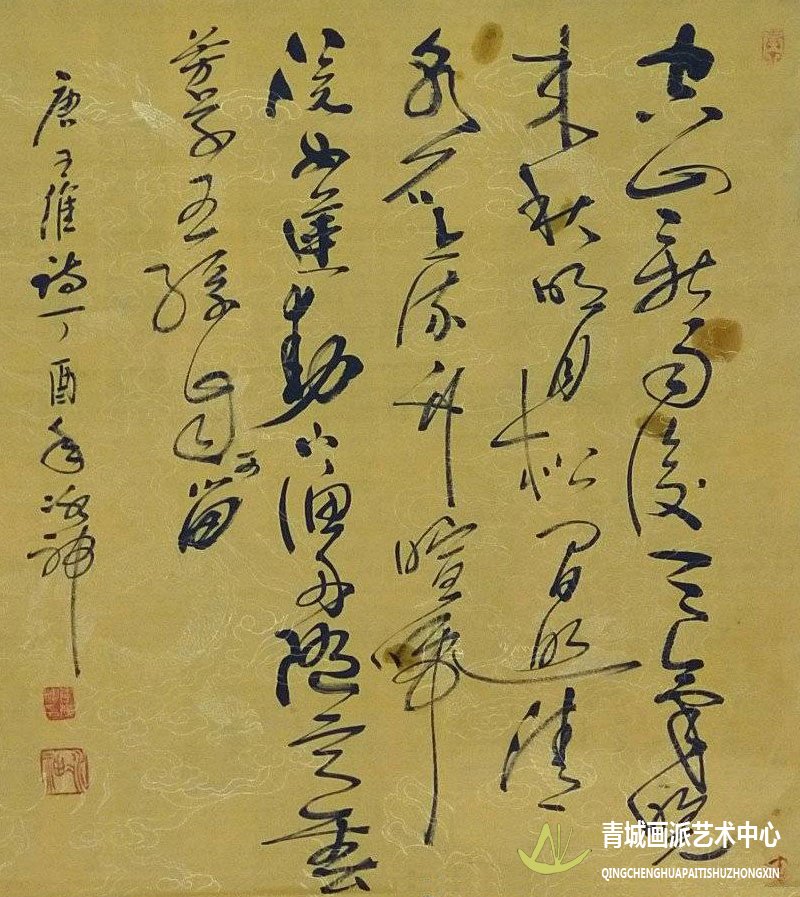 空山新雨後天氣晚
来秋明月松間照清
泉石上流竹喧歸
浣女蓮動下漁舟隨意春
芳歇王孫自可留
唐王維詩丁酉年
青城画派艺术中心
QINGCHENGHUAPAITISHUZHONGXIN